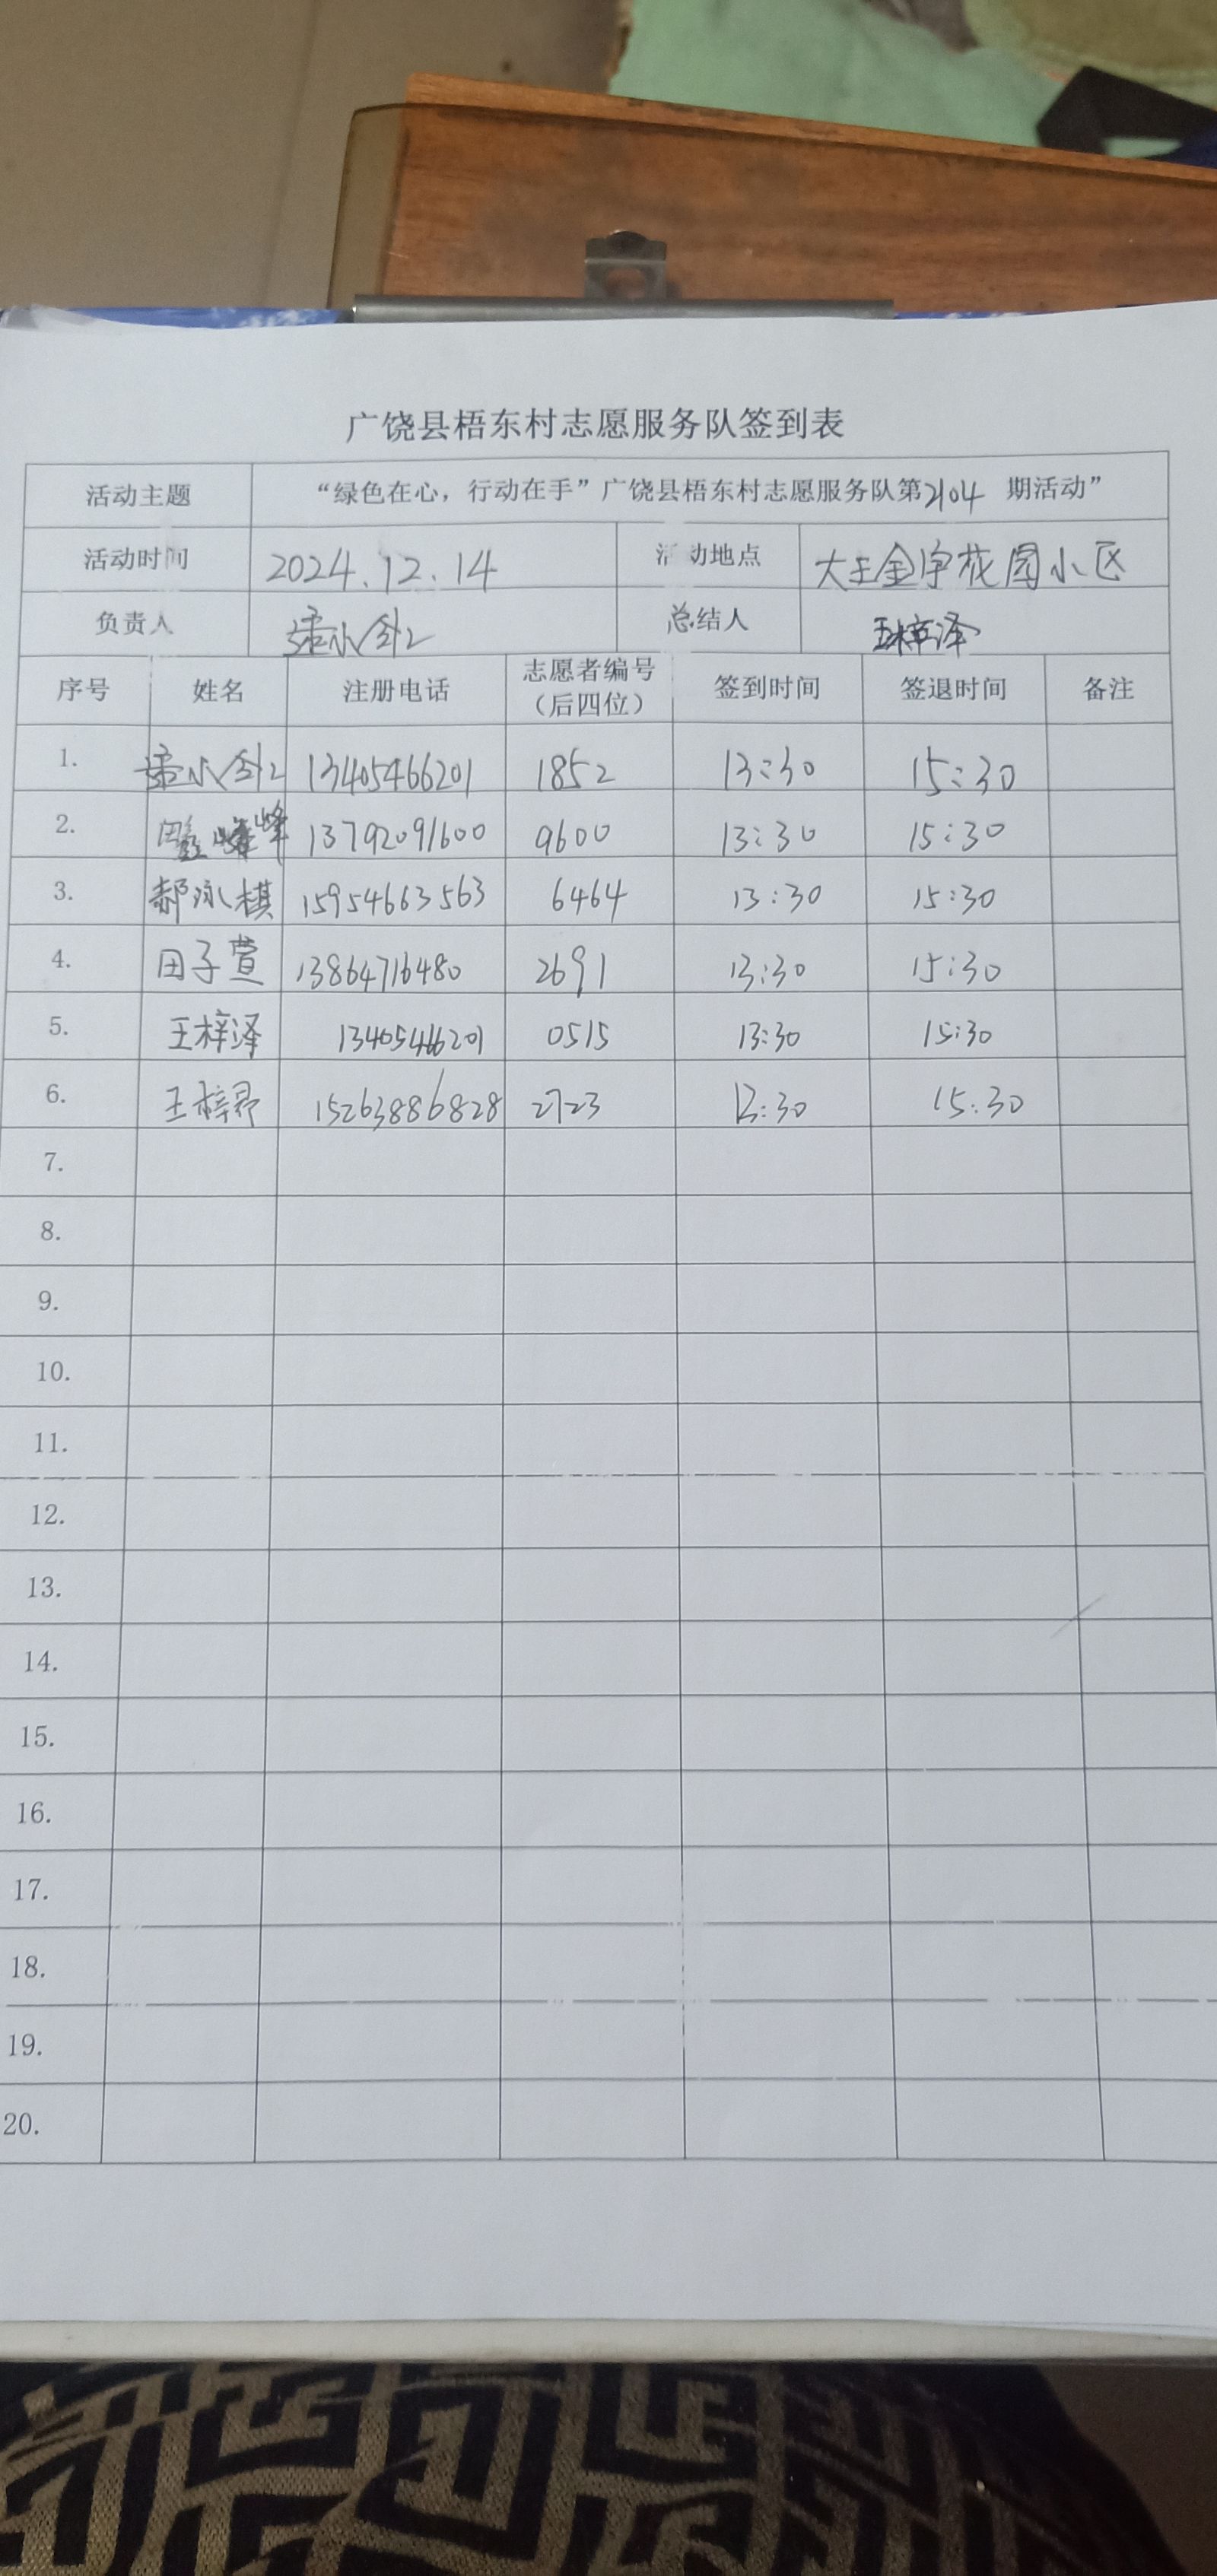 广饶县梧东村志愿服务队签到表
活动主题 “绿色在心，行动在手”广饶县梧东村志愿服务队第2104 期活动”
活动时间 2024.12.14 活动地点 大王金宇花园小区
负责人 总结人 王梓泽
序号 姓名 注册电话 志愿者编号（后四位） 签到时间 签退时间 备注
1. 13405466201 1852 13:30 15:30
2. 13792091600 9600 13:30 15:30
3. 郝泳棋 15954663563 6464 13:30 15:30
4. 田子萱 13864716480 2691 13:30 15:30
5. 王梓泽 13405466201 0515 13:30 15:30
6. 王梓 15263886828 2723 13:30 15:30
7.
8.
9.
10.
11.
12.
13.
14.
15.
16.
17.
18.
19.
20.